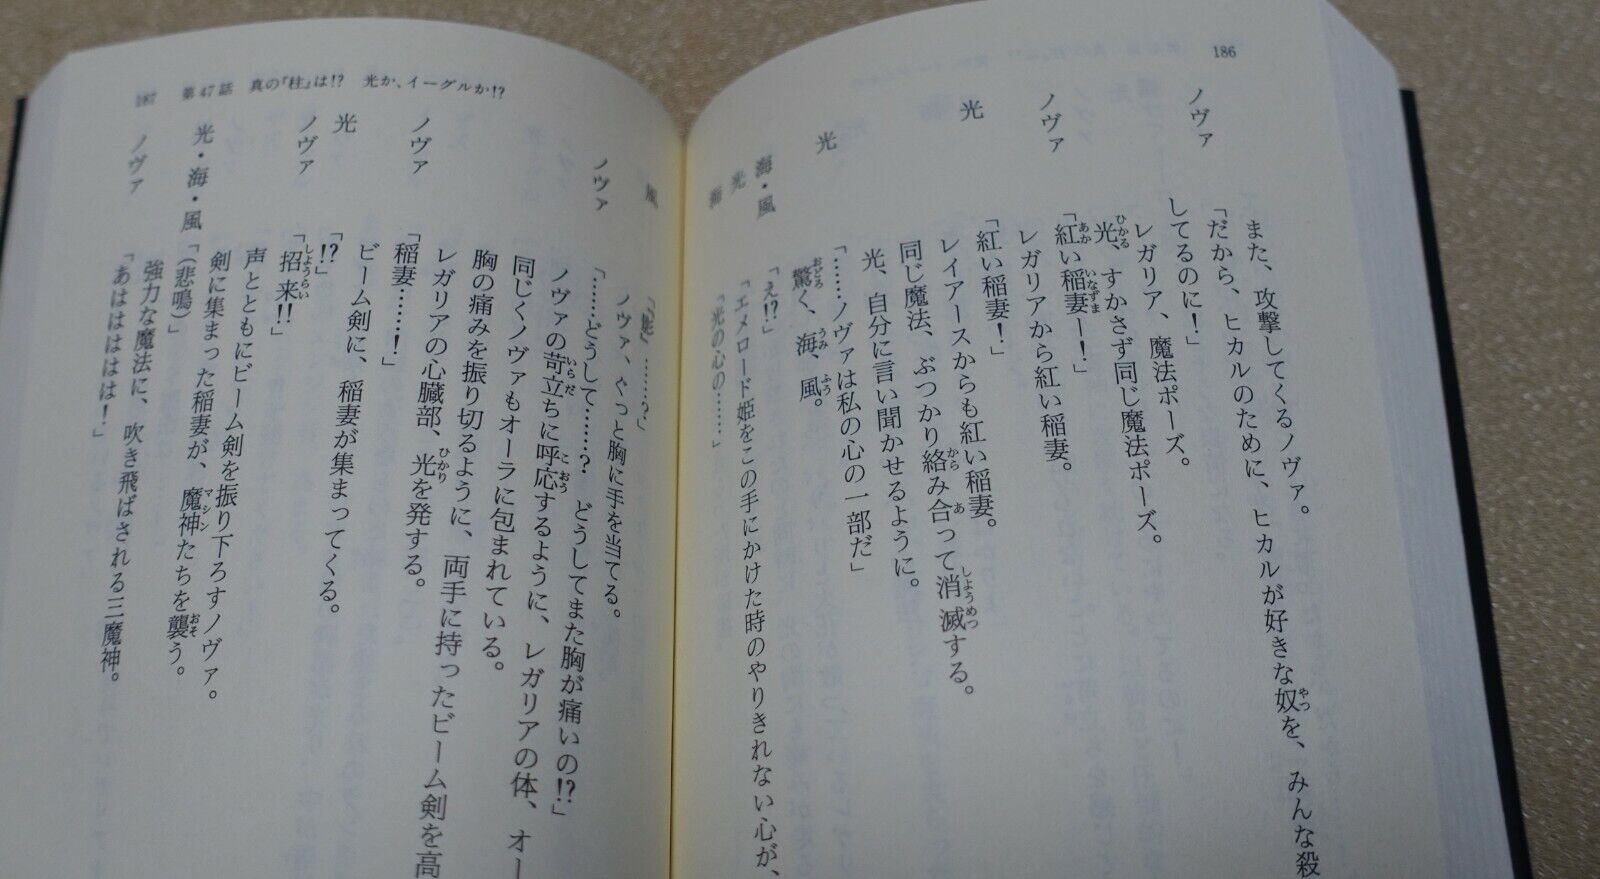 186
また、攻撃してくるノヴァ。
ノヴァ 「だから、ヒカルのために、ヒカルが好きな奴を、みんな殺
してるのに！」
レガリア、魔法ポーズ。
光、すかさず同じ魔法ポーズ。
ノヴァ 「紅い稲妻ー！」
レガリアから紅い稲妻。
光 「紅い稲妻！」
レイアースからも紅い稲妻。
同じ魔法、ぶつかり絡み合って消滅する。
光、自分に言い聞かせるように。
光 「……ノヴァは私の心の一部だ」
驚く、海、風。
海・風 「え!?」
光 「エメロード姫をこの手にかけた時のやりきれない心が、
海 「光の心の……」
187 第47話 真の「柱」は!? 光か、イーグルか!?
風 「『影』……？」
ノヴァ、ぐっと胸に手を当てる。
ノヴァ 「……どうして……？ どうしてまた胸が痛いの!?」
ノヴァの苛立ちに呼応するように、レガリアの体、オー
同じくノヴァもオーラに包まれている。
胸の痛みを振り切るように、両手に持ったビーム剣を高
レガリアの心臓部、光を発する。
ノヴァ 「稲妻……！」
ビーム剣に、稲妻が集まってくる。
光 「!?」
ノヴァ 「招来!!」
声とともにビーム剣を振り下ろすノヴァ。
剣に集まった稲妻が、魔神たちを襲う。
光・海・風 「（悲鳴）」
強力な魔法に、吹き飛ばされる三魔神。
ノヴァ 「あははははは！」